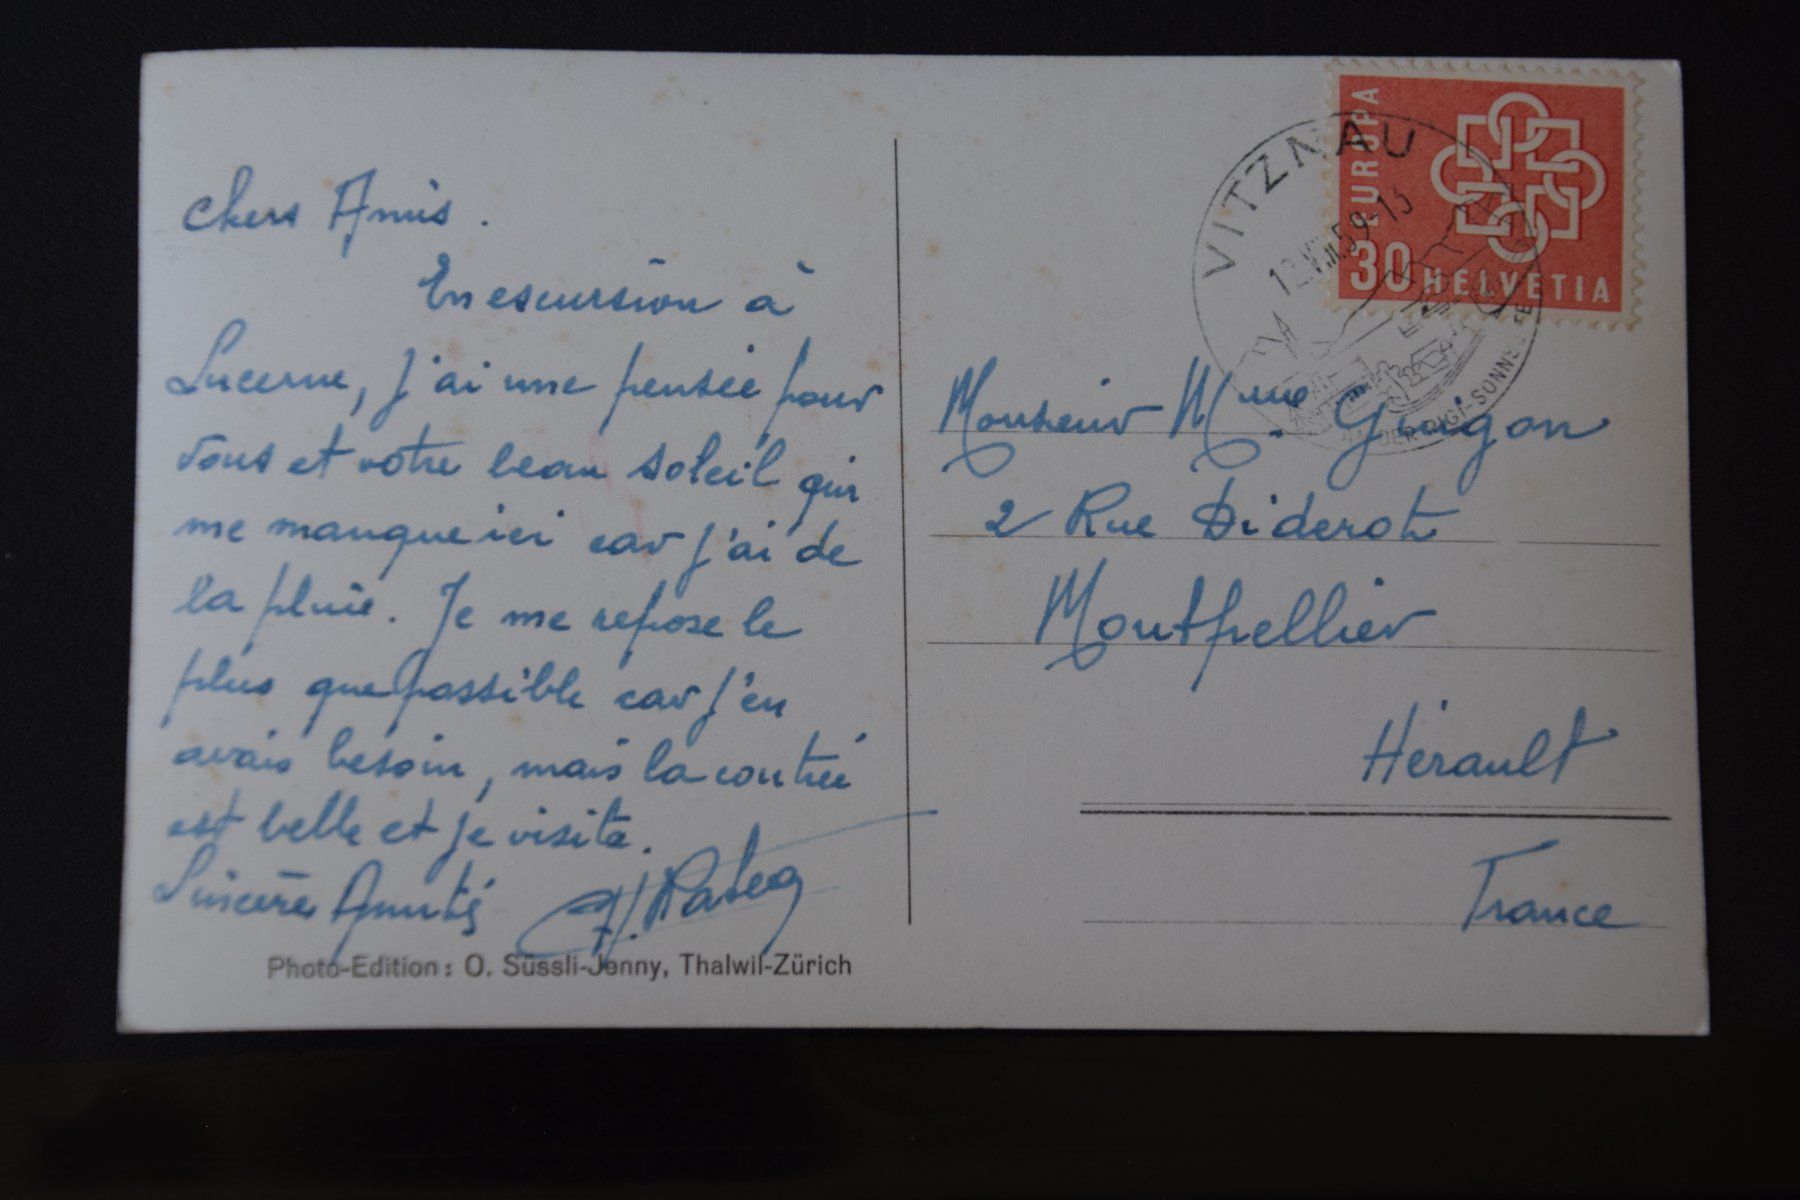 chers Amis.
En escursion à
Lucerne, j'ai une pensée pour
vous et votre beau soleil qui
me manque ici car j'ai de
la pluie. Je me repose le
plus que possible car j'en
avais besoin, mais la contrée
est belle et je visite.
Sincère Amitiés
Photo-Edition: O. Süssli-Jenny, Thalwil-Zürich
EUROPA
30 HELVETIA
VITZNAU
59-13
AN DER RIGI-SONNSEITE
Monsieur Mme Guigon
2 Rue Diderot
Montpellier
Hérault
France